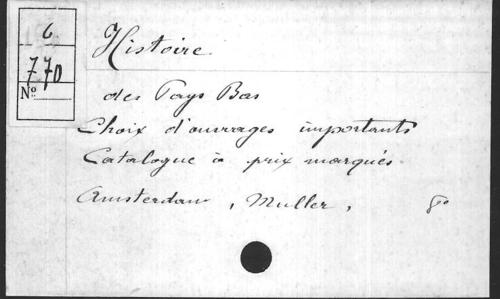 6
770
No
Histoire
des Pays Bas
Choix d'ouvrages importants
Catalogue à prix marqués.
Amsterdam, Muller, 8o